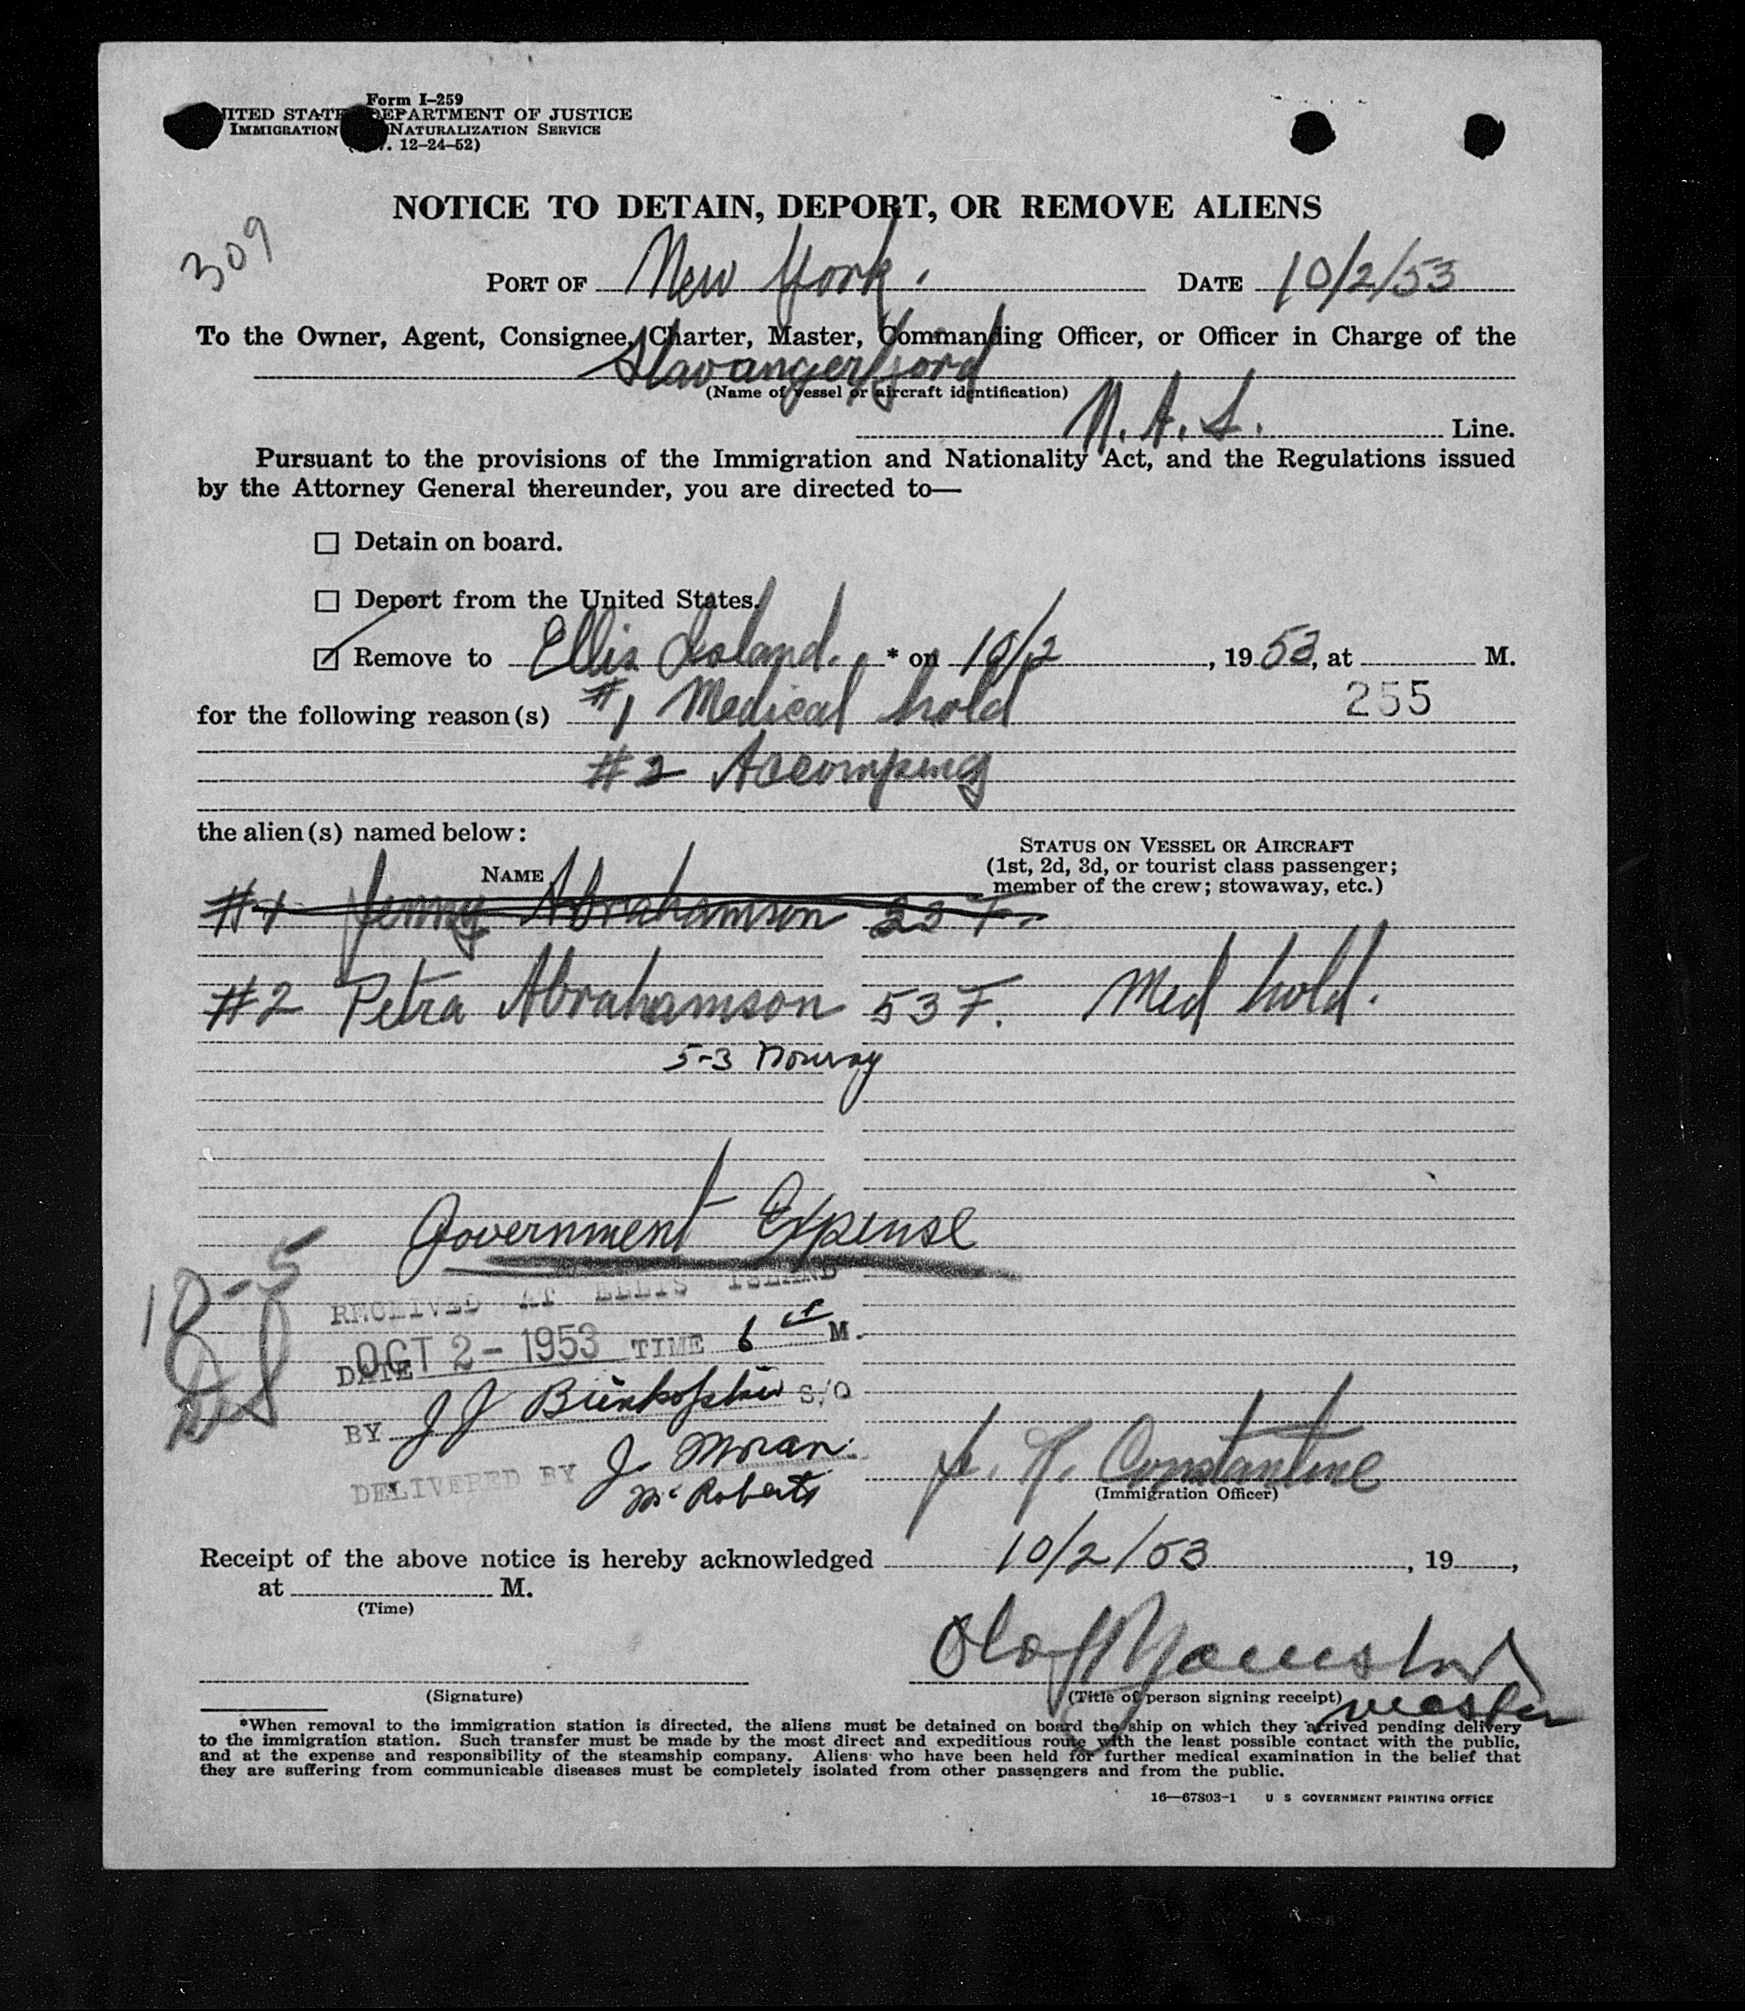 Form I-259
UNITED STATES DEPARTMENT OF JUSTICE
IMMIGRATION NATURALIZATION SERVICE
12-24-52)
NOTICE TO DETAIN, DEPORT, OR REMOVE ALIENS
309
PORT OF New York. DATE 10/2/53
To the Owner, Agent, Consignee, Charter, Master, Commanding Officer, or Officer in Charge of the
Stavangerfjord
(Name of vessel or aircraft identification)
N. A. L. Line.
Pursuant to the provisions of the Immigration and Nationality Act, and the Regulations issued
by the Attorney General thereunder, you are directed to—
Detain on board.
Deport from the United States.
Remove to Ellis Island. * on 10/2, 1953, at M.
255
for the following reason(s) #1 Medical hold
#2 Accomping
the alien(s) named below:
NAME
STATUS ON VESSEL OR AIRCRAFT
(1st, 2d, 3d, or tourist class passenger;
member of the crew; stowaway, etc.)
#1 Jenny Abrahamson 23 F.
#2 Petra Abrahamson 53 F. Med hold.
5-3 Norway
Government Expense
10-5
RECEIVED AT ELLIS ISLAND
DATE OCT 2-1953 TIME 6 M.
BY J J S/O
DELIVERED BY J. Moran
McRoberts
Constantine
(Immigration Officer)
Receipt of the above notice is hereby acknowledged 10/2/53, 19,
at M.
(Time)
Olaf
(Signature)
(Title of person signing receipt) master
*When removal to the immigration station is directed, the aliens must be detained on board the ship on which they arrived pending delivery
to the immigration station. Such transfer must be made by the most direct and expeditious route with the least possible contact with the public,
and at the expense and responsibility of the steamship company. Aliens who have been held for further medical examination in the belief that
they are suffering from communicable diseases must be completely isolated from other passengers and from the public.
16—67803-1 U S GOVERNMENT PRINTING OFFICE